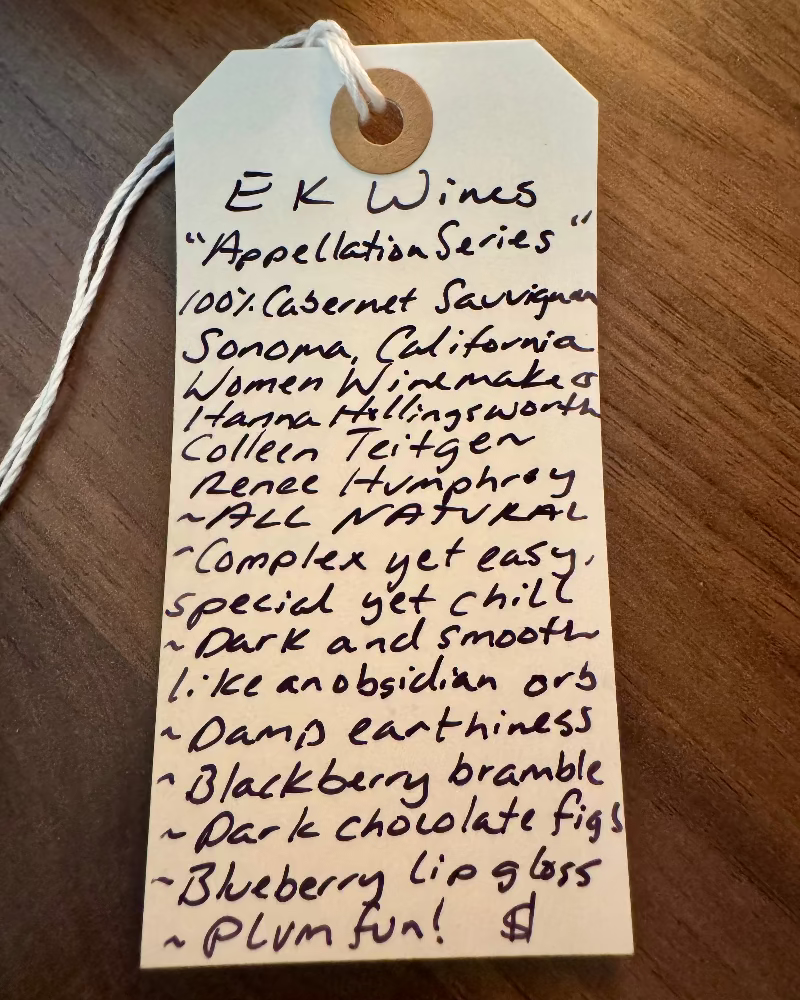 EK Wines
"Appellation Series"
100% Cabernet Sauvignon
Sonoma, California
Women Winemakers
Hanna Hollingsworth
Colleen Teitgen
Renee Humphrey
~ALL NATURAL
~Complex yet easy,
special yet chill
~Dark and smooth
like an obsidian orb
~Damp earthiness
~Blackberry bramble
~Dark chocolate figs
~Blueberry lip gloss
~Plum fun! $